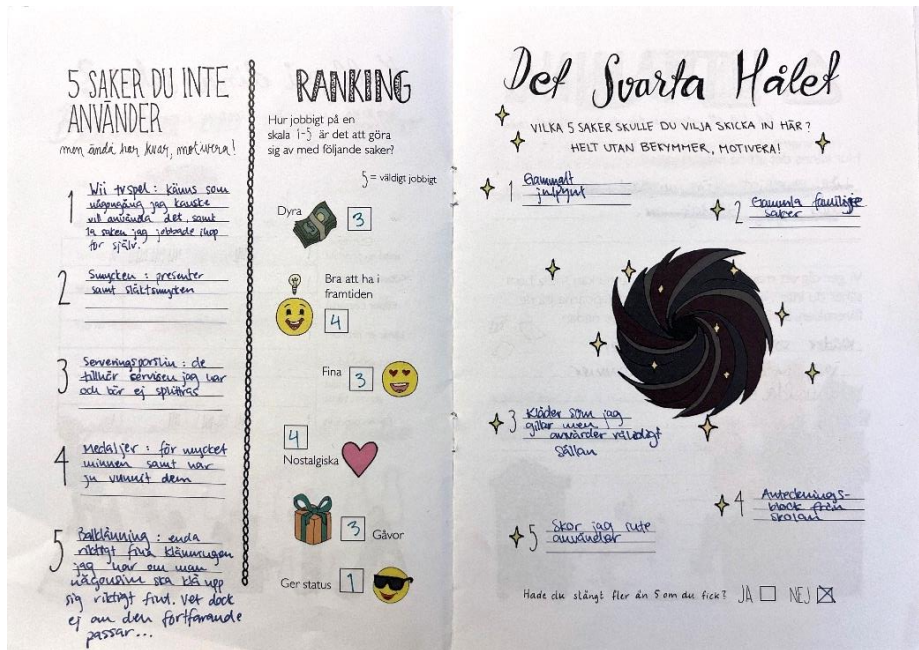 5 SAKER DU INTE
ANVÄNDER
men ändå har kvar, motivera!
1 Wii tvspel: känns som
någongång jag kanske
vill använda det, samt
1a saken jag jobbade ihop
för själv.
2 Smycken: presenter
samt släktsmycken
3 Serveringsporslin: de
tillhör servisen jag har
och bör ej splittras
4 Medaljer: för mycket
minnen samt har
ju vunnit dem
5 Balklänning: enda
riktigt fina klänningen
jag har om man
någonsin ska klä upp
sig riktigt fint. Vet dock
ej om den fortfarande
passar...
RANKING
Hur jobbigt på en
skala 1-5 är det att göra
sig av med följande saker?
5 = väldigt jobbigt
Dyra 3
Bra att ha i
framtiden
4
Fina 3
4
Nostalgiska
3 Gåvor
Ger status 1
Det Svarta Hålet
VILKA 5 SAKER SKULLE DU VILJA SKICKA IN HÄR?
HELT UTAN BEKYMMER, MOTIVERA!
1 Gammalt
julpynt
2 Gamla familje
saker
3 Kläder som jag
gillar men jag
använder väldigt
sällan
4 Antecknings-
block från
skolan
5 Skor jag inte
använder
Hade du slängt fler än 5 om du fick? JA NEJ